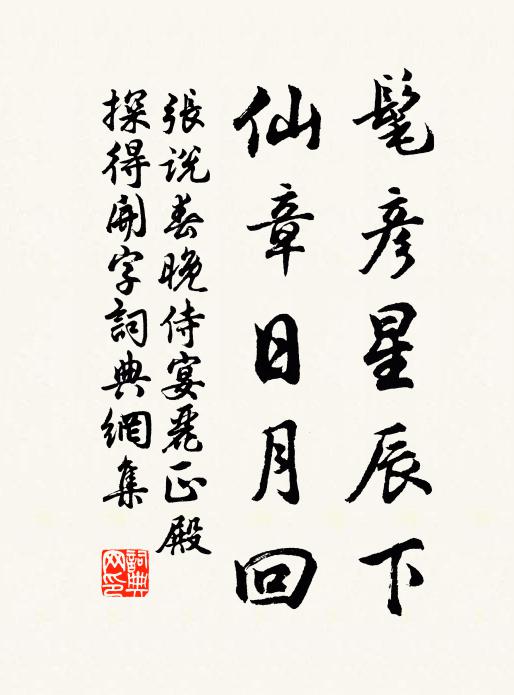 髦彦星辰下
仙章日月回
張説春晚侍宴麗正殿
探得開字詞典網集
詞典网印